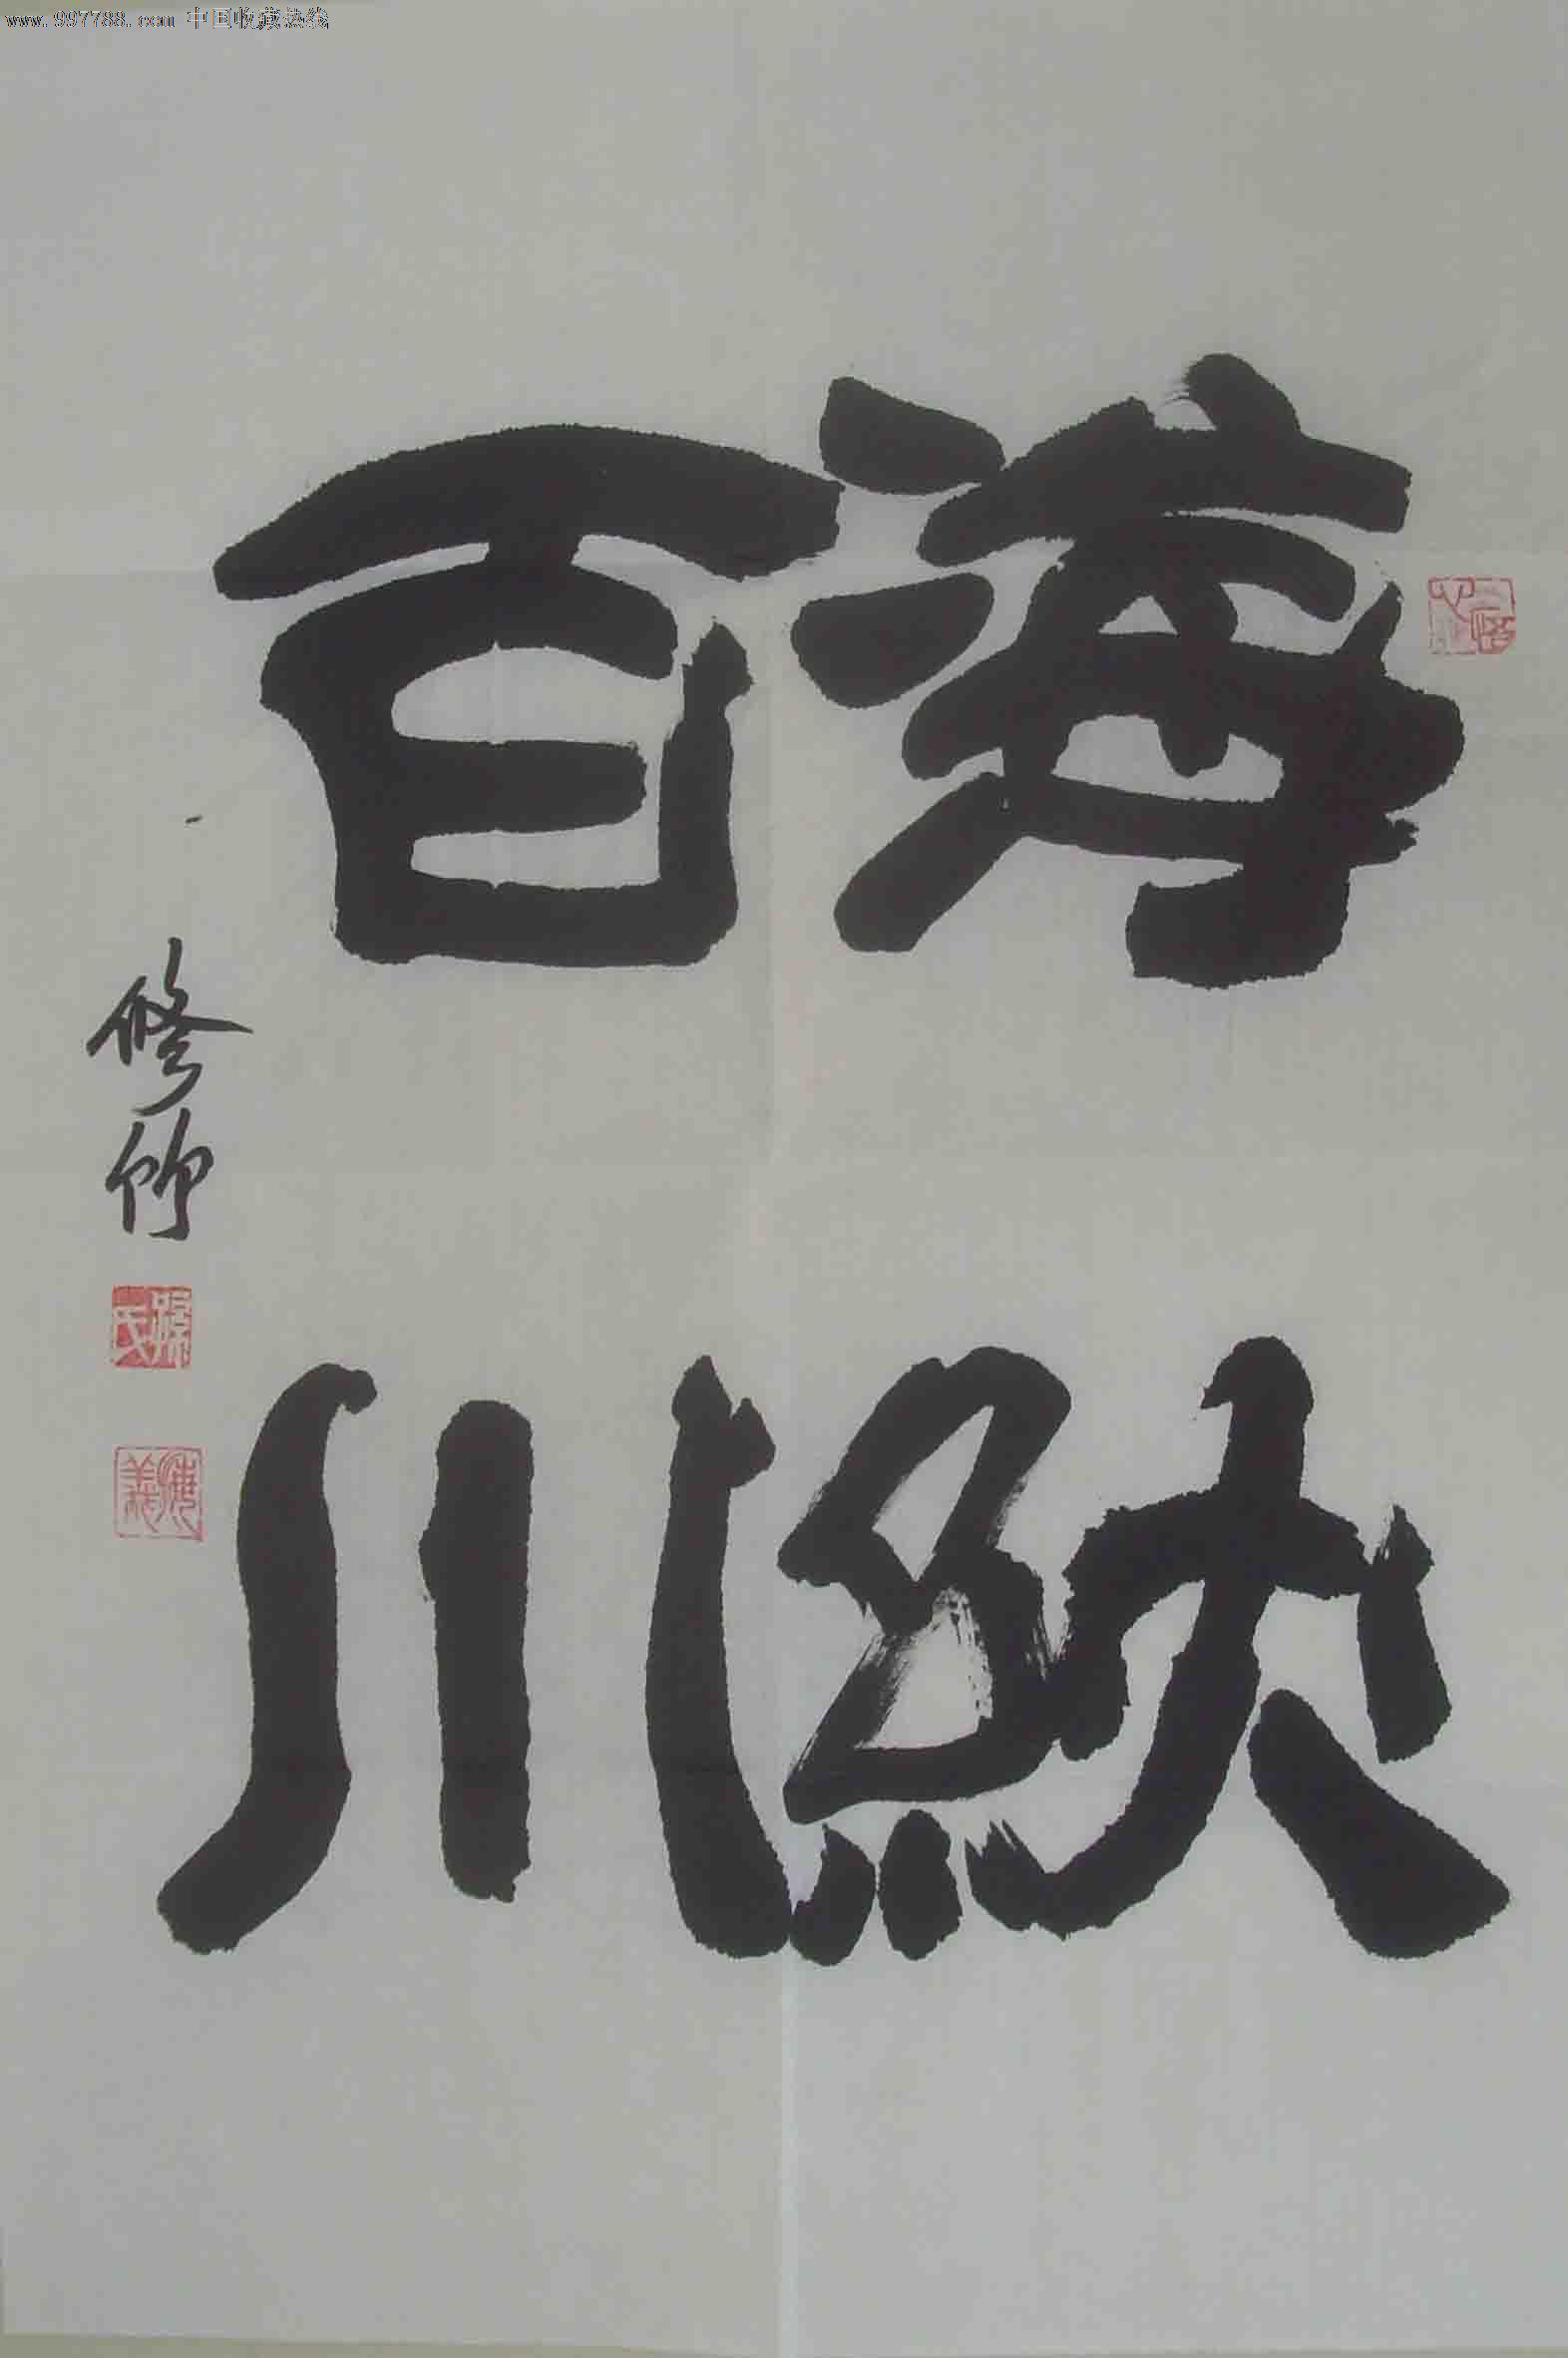 www.997788.com 中国收藏热线
海納
百川
修竹
孫氏